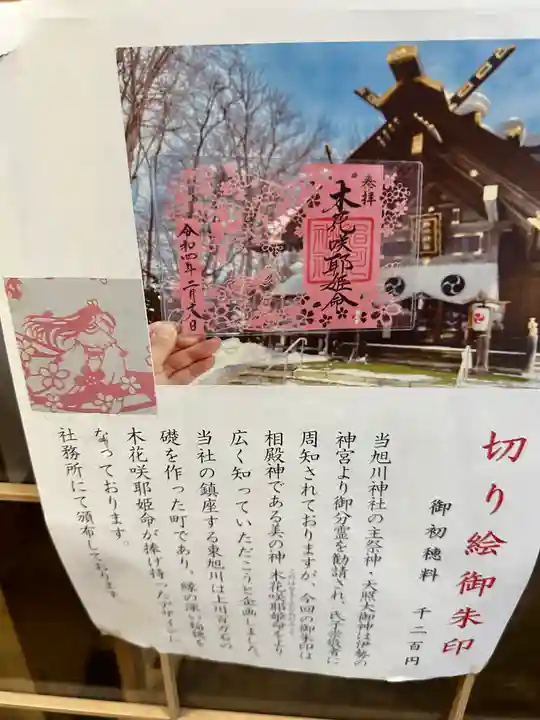 切り絵御朱印
御初穂料　千二百円
奉拝
木花咲耶姫命
令和四年二月
当旭川神社の主祭神・天照大御神は伊勢の
神宮より御分霊を勧請され、氏子崇敬者に
周知されておりますが、今回の御朱印は
相殿神である美の神 木花咲耶姫命をより
広く知っていただこうと企画しました。
当社の鎮座する東旭川は上川百万石の
礎を作った町であり、縁の深い
木花咲耶姫命が捧げ持ったデザインに
なっております。
社務所にて頒布しております